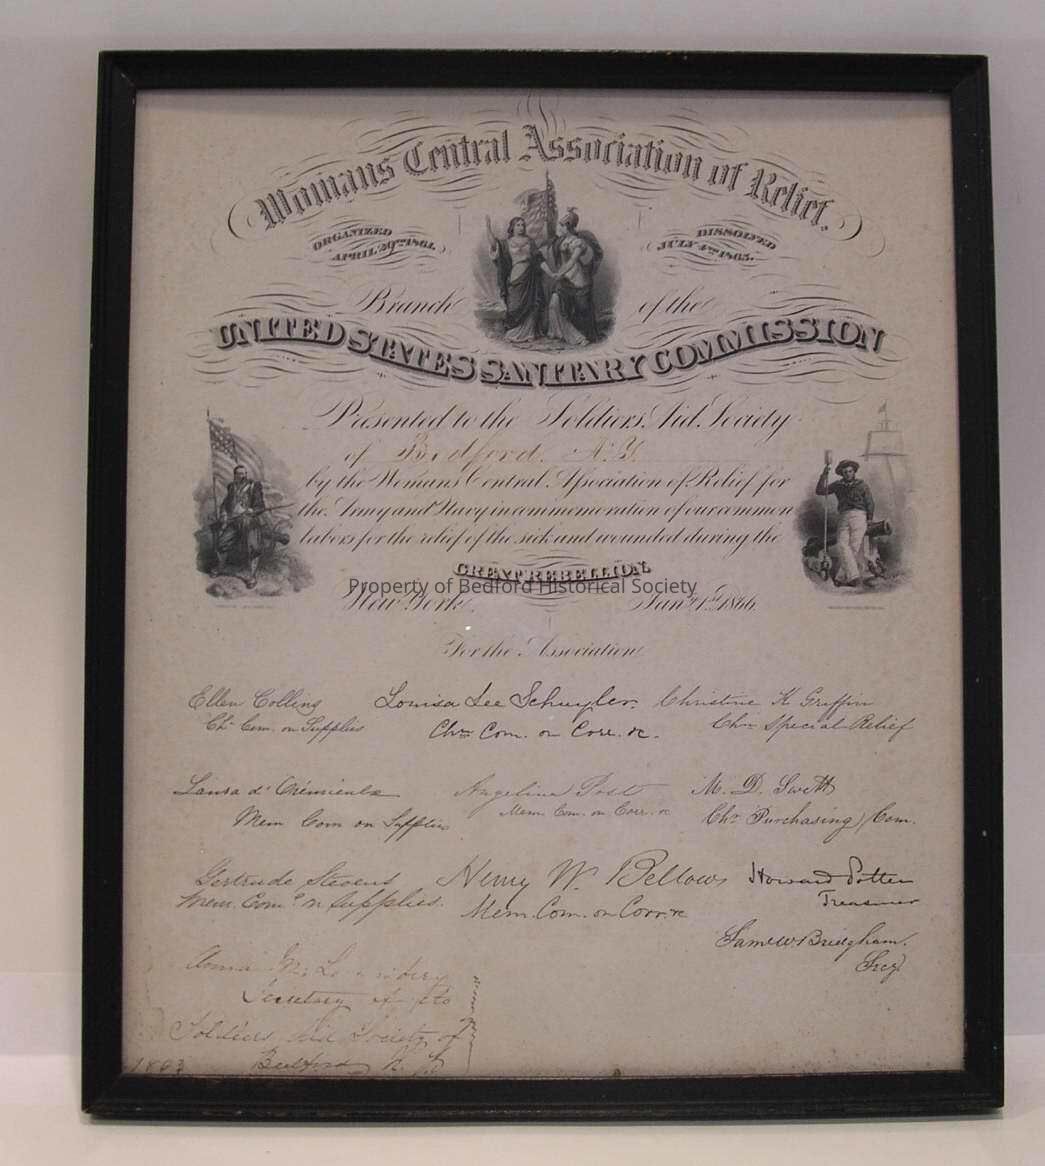 Womans Central Association of Relief.
ORGANIZED
APRIL 29TH 1861.
DISSOLVED
JULY 4TH 1865.
Branch of the
UNITED STATES SANITARY COMMISSION
Presented to the Soldiers Aid Society
of Bedford. N.Y.
by the Womans Central Association of Relief for
the Army and Navy in commemoration of our common
labors for the relief of the sick and wounded during the
GREAT REBELLION.
Property of Bedford Historical Society
New York, Jany 1st 1866.
For the Association
Ellen Collins Louisa Lee Schuyler. Christine K Griffin
Chn Com. on Supplies Chn Com. on Corr. &c. Chn Special Relief
Angelina Post M. D. Swett
Mem Com on Supplies Mem. Com. on Corr. &c Chn Purchasing Com.
Gertrude Stevens Henry W. Bellows Howard Potter
Mem. Com. on Supplies. Mem. Com. on Corr. &c Treasurer
Saml W Bridgham.
Secy.
Secretary of the
Soldiers Aid Society of
Bedford N. Y.
1863